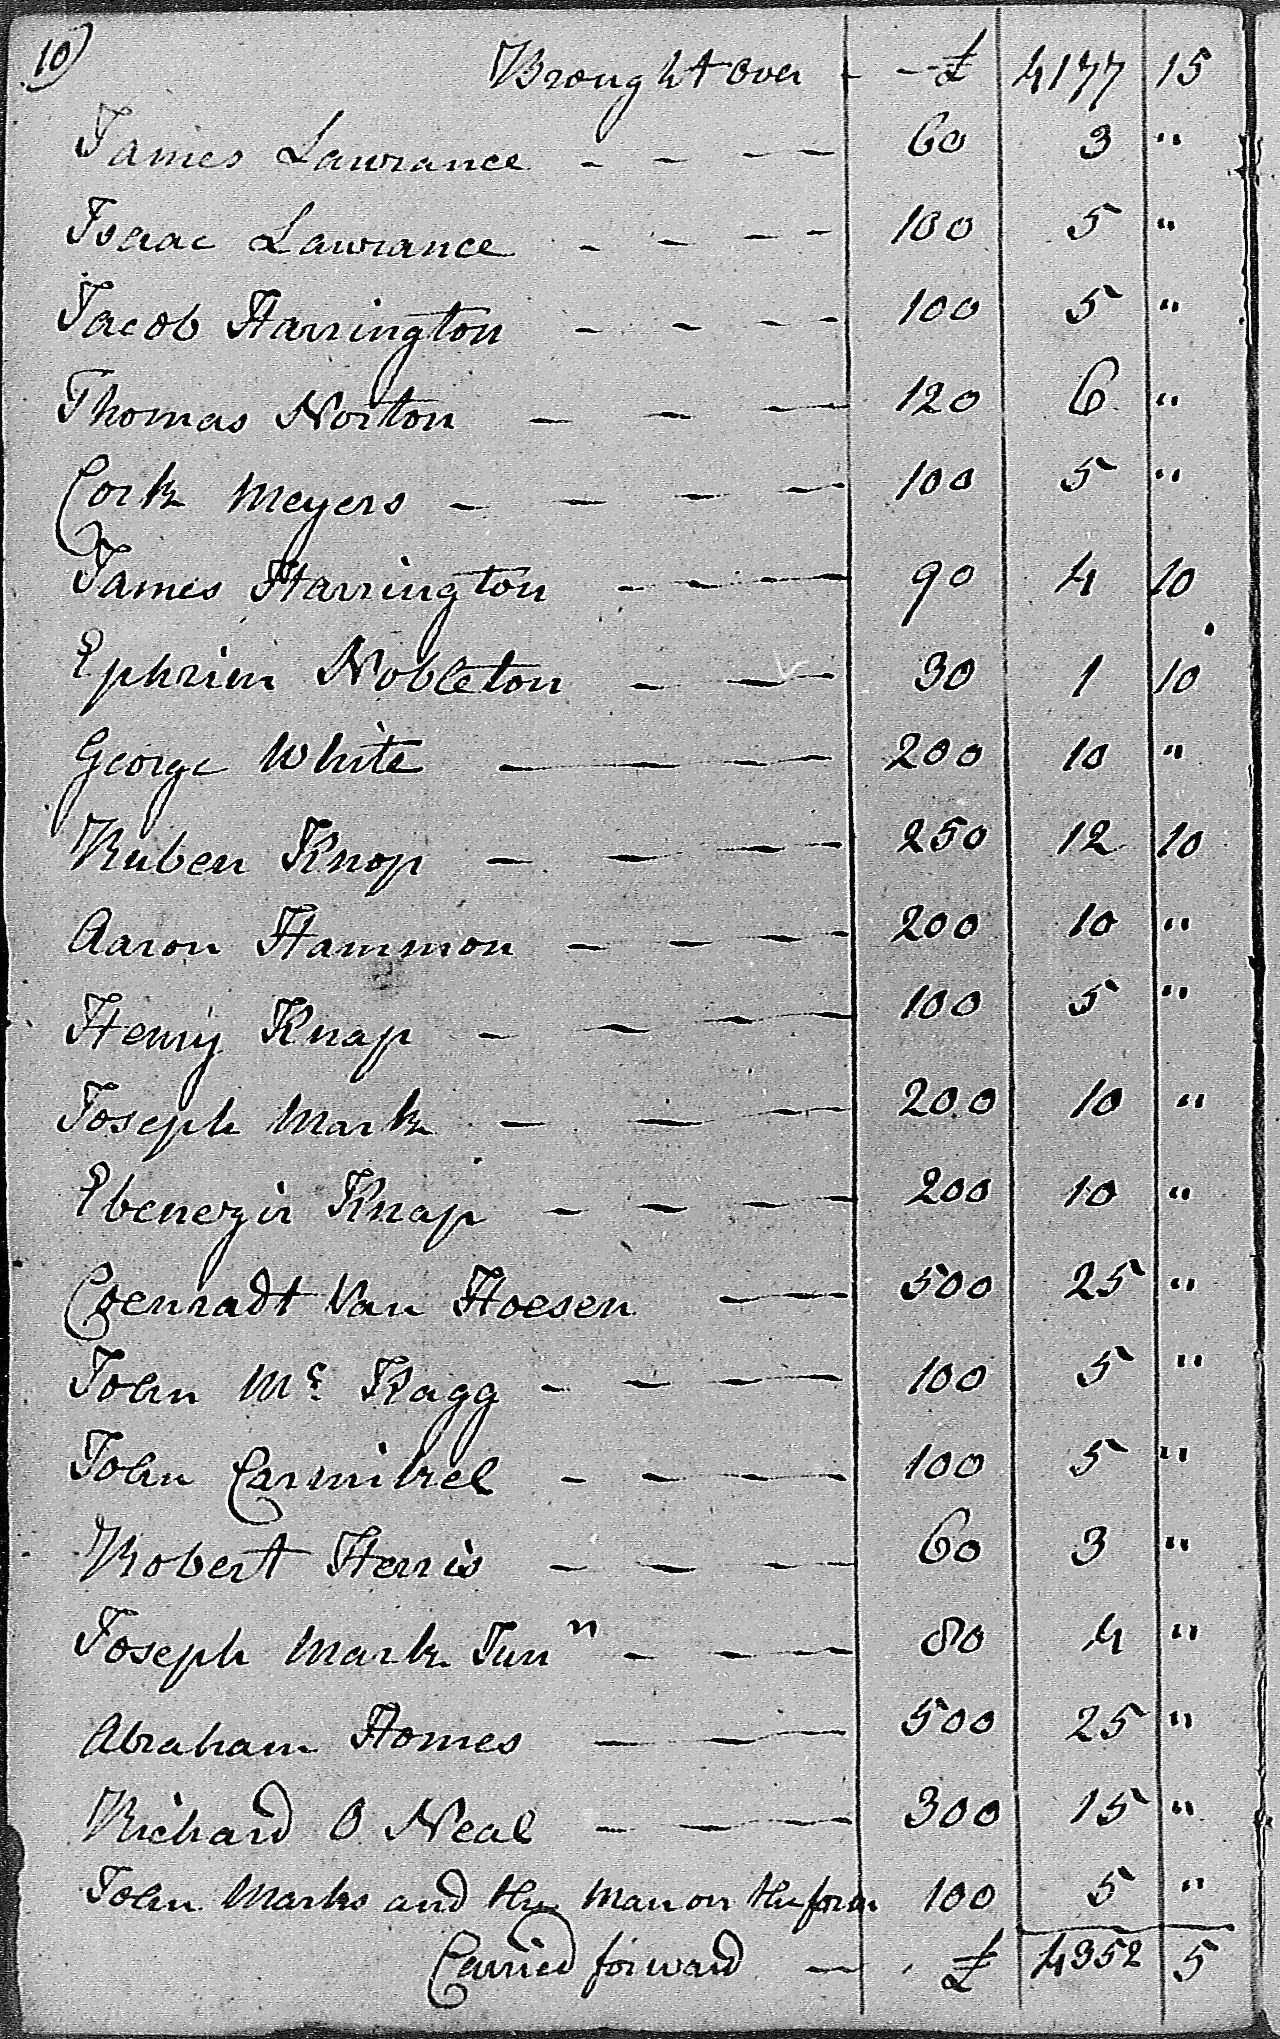 10)
Brought Over - - - £ 4177 15
James Lawrance - - - - 60 3 "
Isaac Lawrance - - - - 100 5 "
Jacob Harrington - - - - 100 5 "
Thomas Norton - - - 120 6 "
Cork Meyers - - - - 100 5 "
James Harrington - - - - 90 4 10
Ephriem Nobleton - - - 30 1 10
George White - - - - 200 10 "
Ruben Knop - - - - 250 12 10
Aaron Hammon - - - - 200 10 "
Henry Knap - - - - 100 5 "
Joseph Mark - - - 200 10 "
Ebenezir Knap - - - - 200 10 "
Coenradt Van Hoesen - - 500 25 "
John Mc. Kagg - - - - 100 5 "
John Carmikel - - - - 100 5 "
Robert Herris - - - 60 3 "
Joseph Mark Junr - - - 80 4 "
Abraham Homes - - - 500 25 "
Richard O Neal - - - 300 15 "
John Marks and the Man on the farm 100 5 "
Carried forward - - £ 4352 5